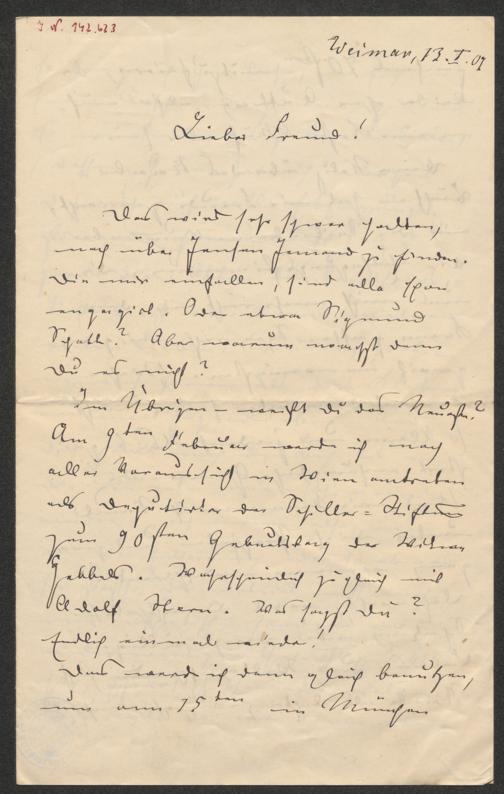 J. N. 142.623
Weimar, 13. I. 07
Lieber Freund!
Das wird sehr schwer halten,
noch über Jensen Jemand zu finden.
Die mir einfallen, sind alle schon
engagirt. Oder etwa Sigmund
Schott? Aber warum machst denn
Du es nicht?
Im Übrigen – weißt Du das Neueste?
Am 9ten Februar werde ich nach
aller Voraussicht in Wien antreten
als Deputirter der Schiller-Stiftung
zum 90sten Geburtstag der Witwe
Hebbels. Wahrscheinlich zugleich mit
Adolf Stern. Was sagst Du?
Endlich einmal wieder!
Das werde ich dann gleich benutzen,
um am 15ten in München